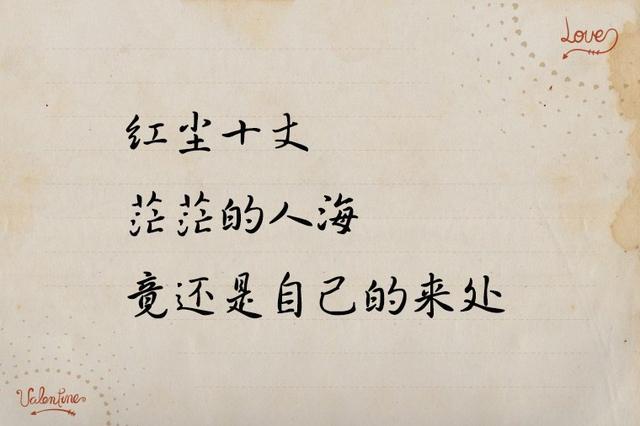 Love
红尘十丈
茫茫的人海
竟还是自己的来处
Valentine